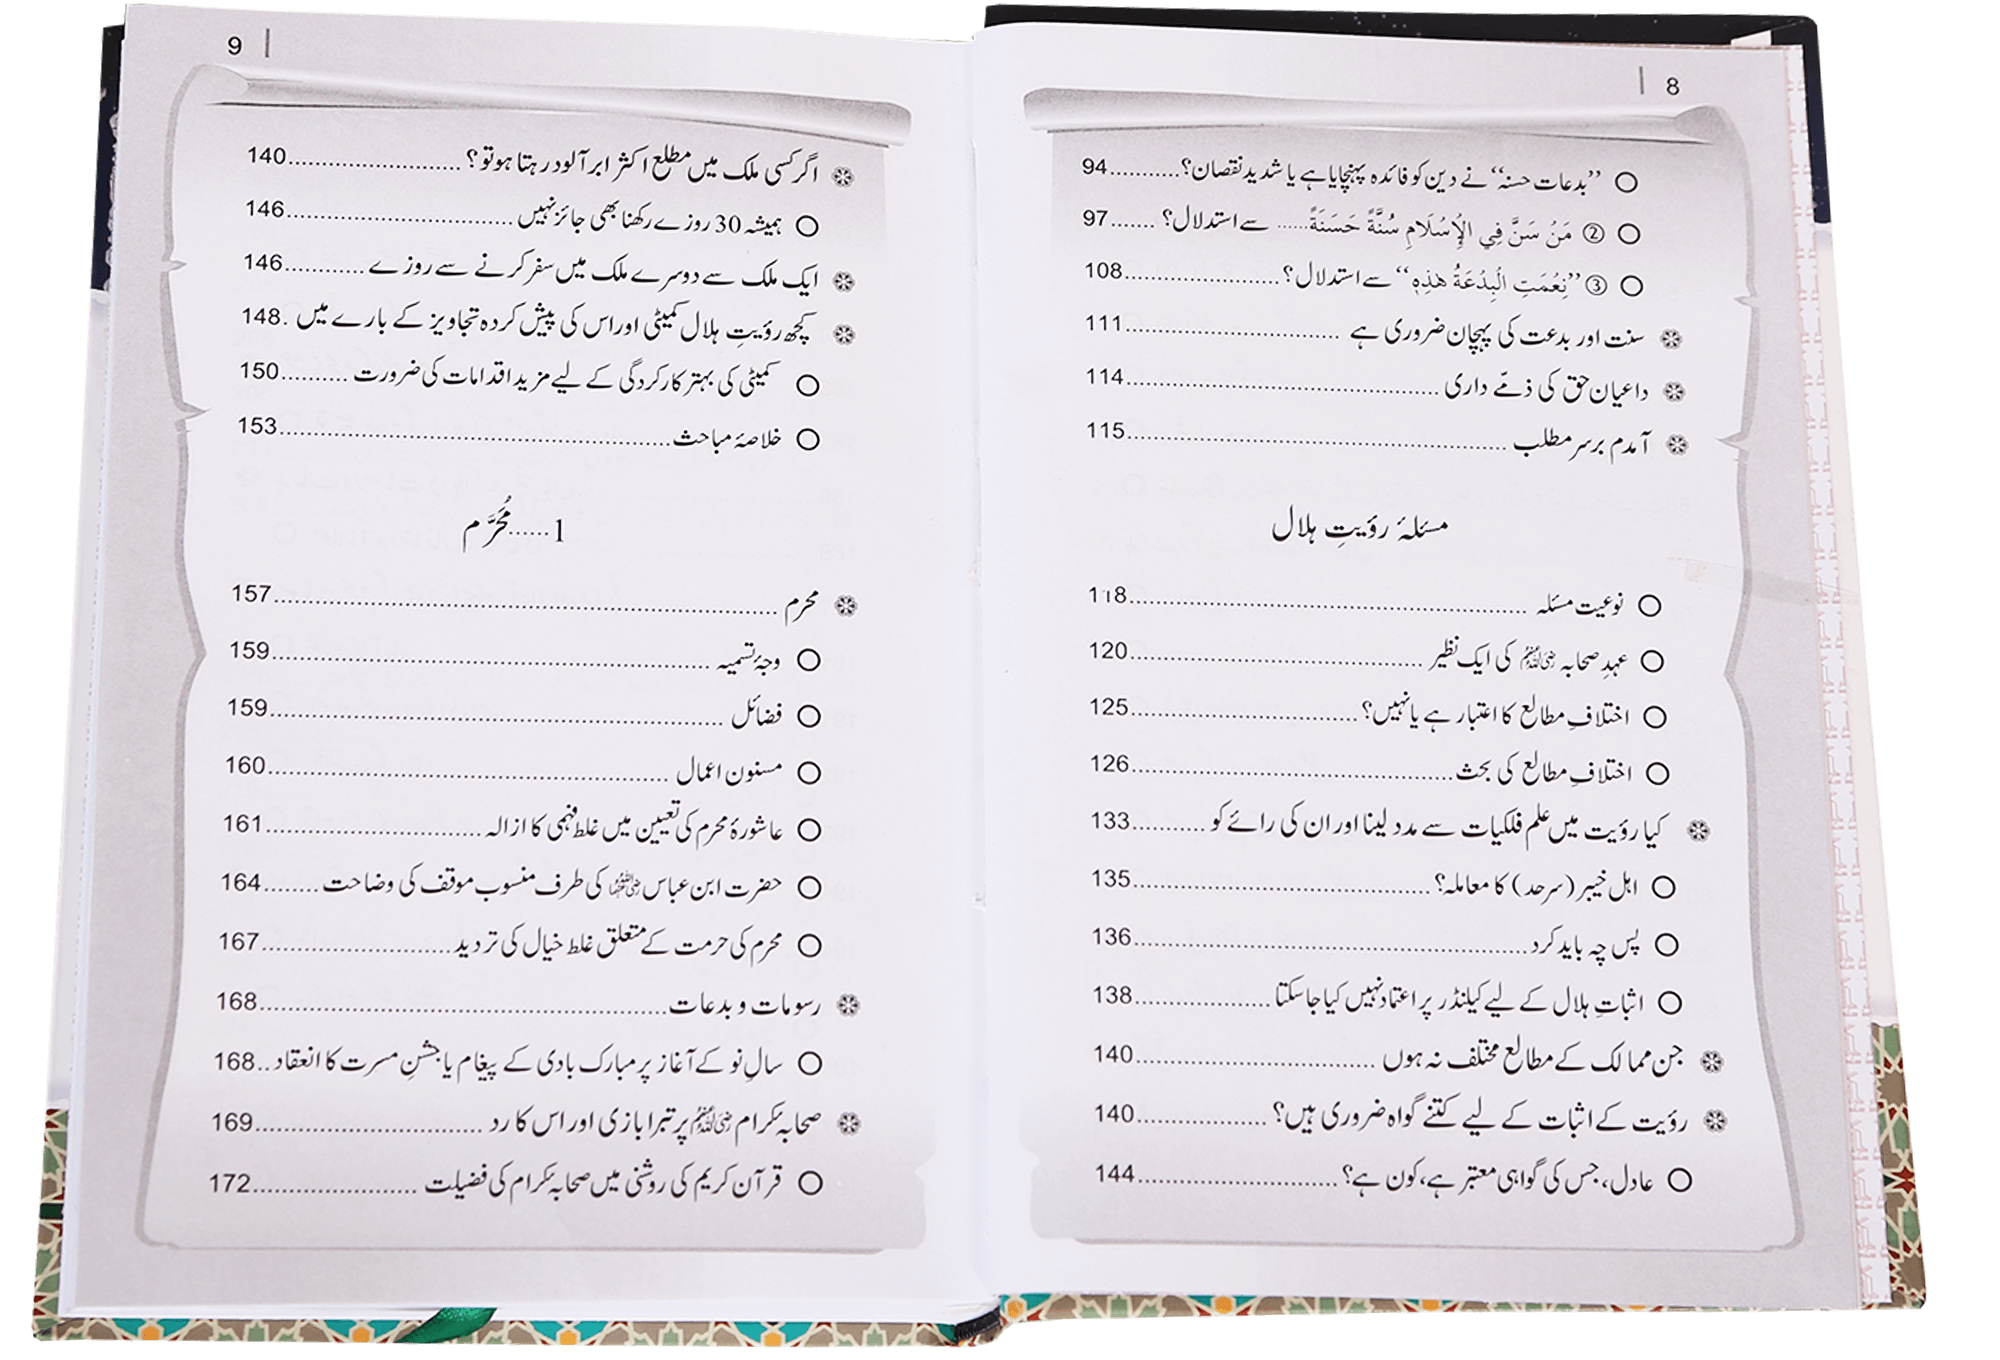 8
’’بدعات حسنہ‘‘ نے دین کو فائدہ پہنچایا ہے یا شدید نقصان؟...........94
② مَنْ سَنَّ فِي الْإِسْلَامِ سُنَّةً حَسَنَةً...... سے استدلال؟.......97
③ ’’نِعْمَتِ الْبِدْعَةُ هٰذِهٖ‘‘ سے استدلال؟......................108
سنت اور بدعت کی پہچان ضروری ہے ..............................111
داعیان حق کی ذمّے داری ............................................114
آمدم برسر مطلب ......................................................115
مسئلۂ رؤیتِ ہلال
نوعیت مسئلہ .........................................................118
عہدِ صحابہ رضی اللہ عنہم کی ایک نظیر ..........................................120
اختلافِ مطالع کا اعتبار ہے یا نہیں؟................................125
اختلافِ مطالع کی بحث.............................................126
کیا رؤیت میں علم فلکیات سے مدد لینا اور ان کی رائے کو ..........133
اہل خیبر (سرحد) کا معاملہ؟..........................................135
پس چہ باید کرد.......................................................136
اثباتِ ہلال کے لیے کیلنڈر پر اعتماد نہیں کیا جاسکتا...................138
جن ممالک کے مطالع مختلف نہ ہوں ..................................140
رؤیت کے اثبات کے لیے کتنے گواہ ضروری ہیں؟ ...................140
عادل، جس کی گواہی معتبر ہے، کون ہے؟............................144
9
اگر کسی ملک میں مطلع اکثر ابر آلود رہتا ہو تو؟ ........................140
ہمیشہ 30 روزے رکھنا بھی جائز نہیں ................................146
ایک ملک سے دوسرے ملک میں سفر کرنے سے روزے ............146
کچھ رؤیتِ ہلال کمیٹی اور اس کی پیش کردہ تجاویز کے بارے میں .148
کمیٹی کی بہتر کارکردگی کے لیے مزید اقدامات کی ضرورت ..........150
خلاصۂ مباحث.......................................................153
1......مُحَرَّم
محرم ..................................................................157
وجۂ تسمیہ ............................................................159
فضائل ...............................................................159
مسنون اعمال ........................................................160
عاشورۂ محرم کی تعیین میں غلط فہمی کا ازالہ..............................161
حضرت ابن عباس رضی اللہ عنہما کی طرف منسوب موقف کی وضاحت ........164
محرم کی حرمت کے متعلق غلط خیال کی تردید..........................167
رسومات و بدعات....................................................168
سالِ نو کے آغاز پر مبارک بادی کے پیغام یا جشنِ مسرت کا انعقاد ..168
صحابہ کرام رضی اللہ عنہم پر تبرا بازی اور اس کا رد ..............................169
قرآن کریم کی روشنی میں صحابہ کرام کی فضیلت ......................172